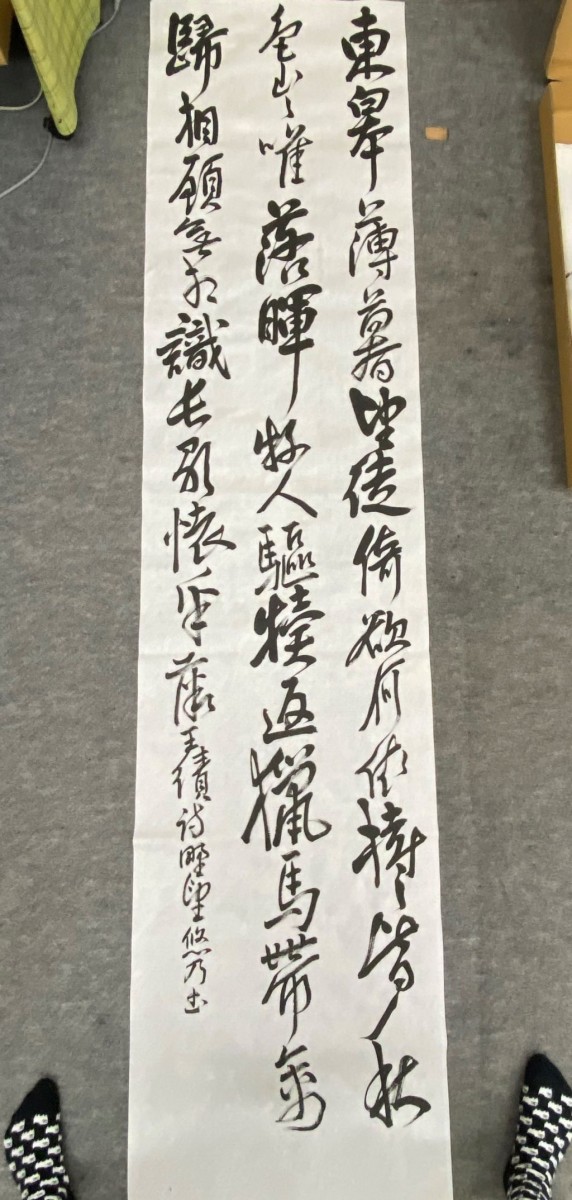 東皋薄暮望徙倚欲何依樹々皆秋
色山々唯落暉牧人驅犢返獵馬帶禽
歸相顧無相識長歌懷采薇 王績詩野望 悠乃書